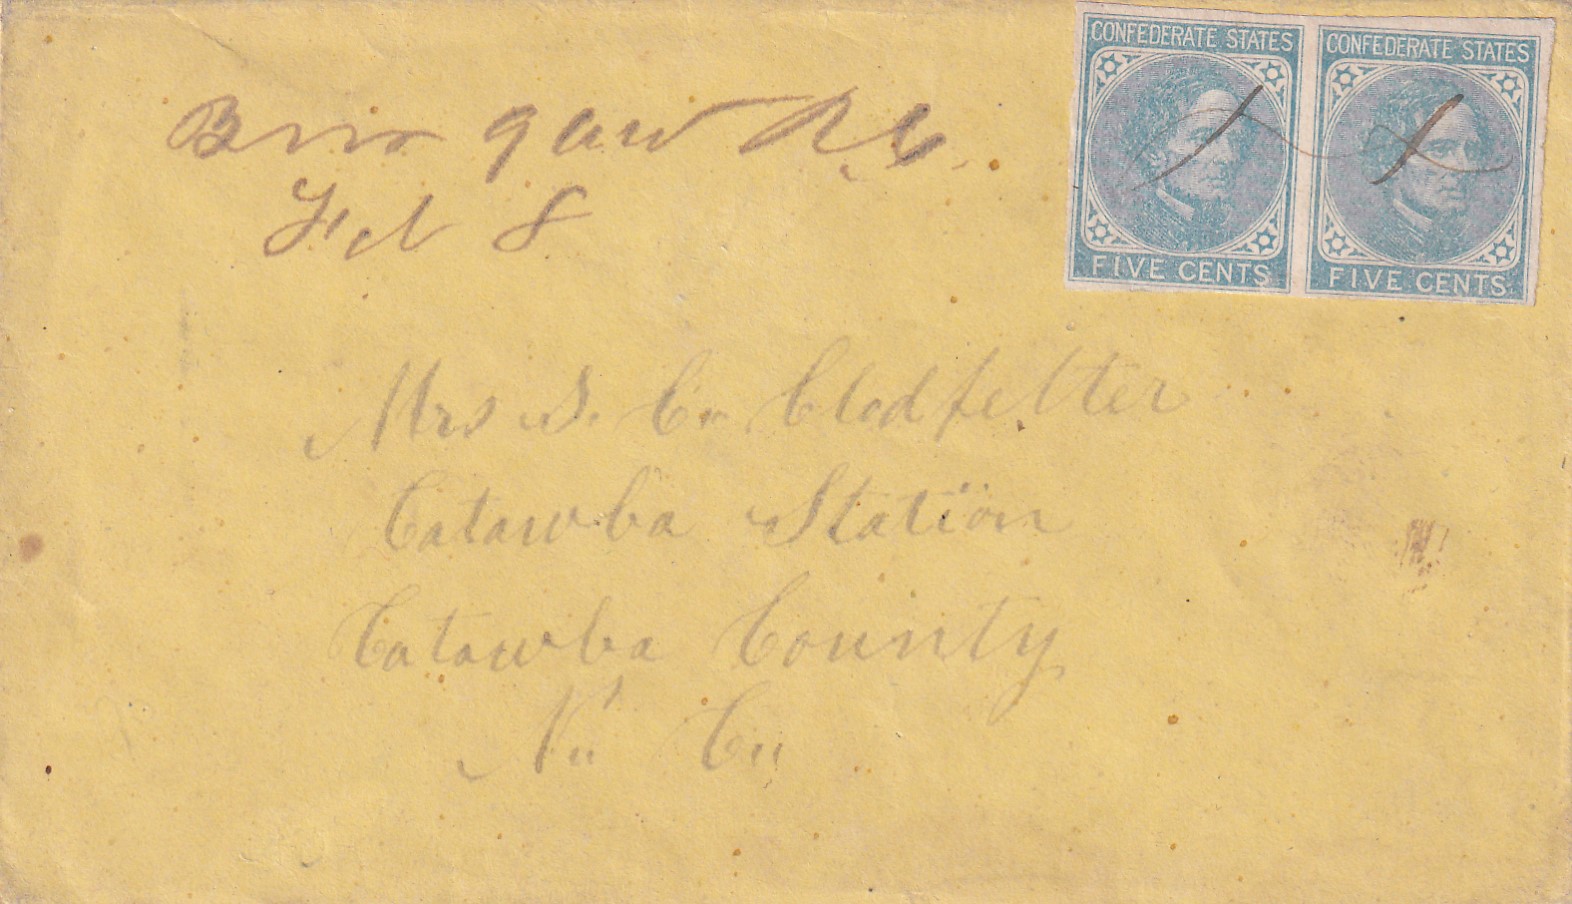 Burgaw N.C.
Feb 8
CONFEDERATE STATES
FIVE CENTS
CONFEDERATE STATES
FIVE CENTS
Mrs S. C. Clodfelter
Catawba Station
Catawba County
N. C.